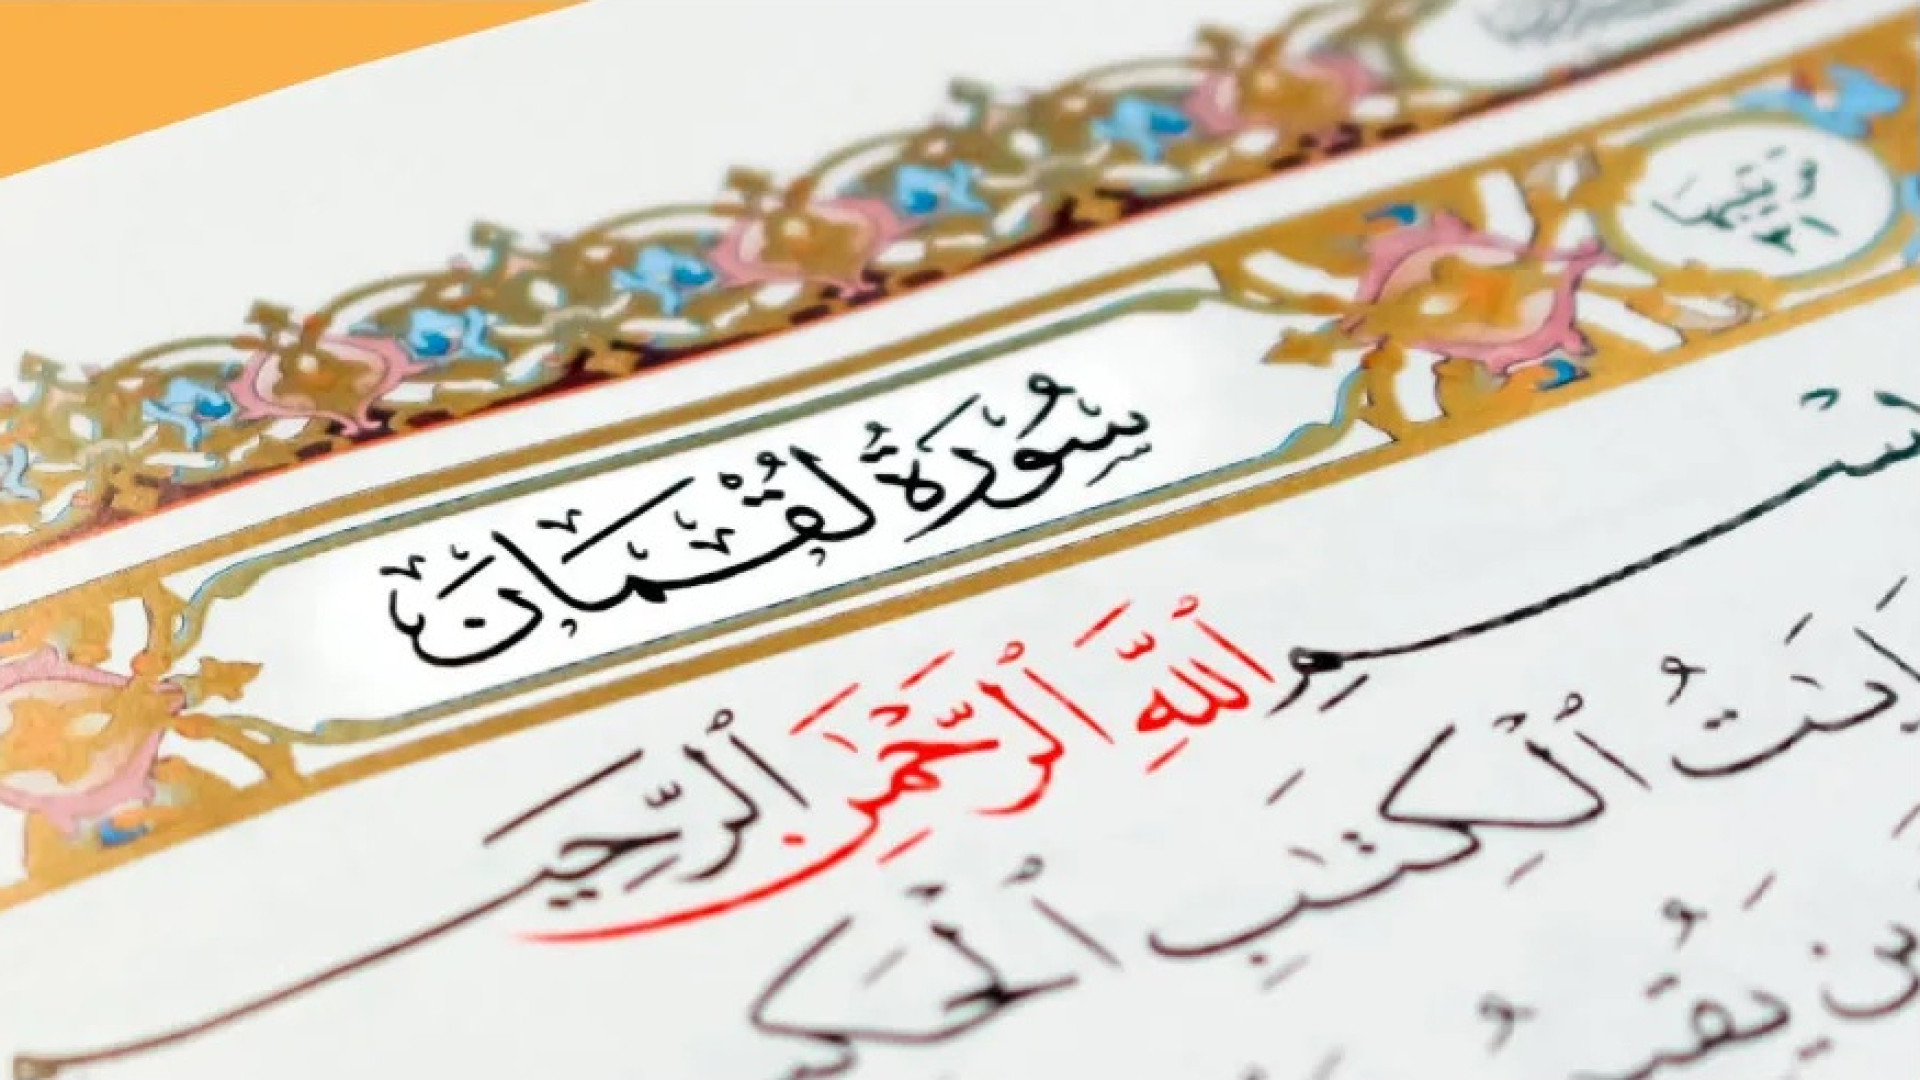 ترتيبها
٣١
سُورَةُ لُقْمَانَ
بِسْمِ ٱللَّهِ ٱلرَّحْمَٰنِ ٱلرَّحِيمِ
ءَايَٰتُ ٱلْكِتَٰبِ ٱلْحَكِيمِ